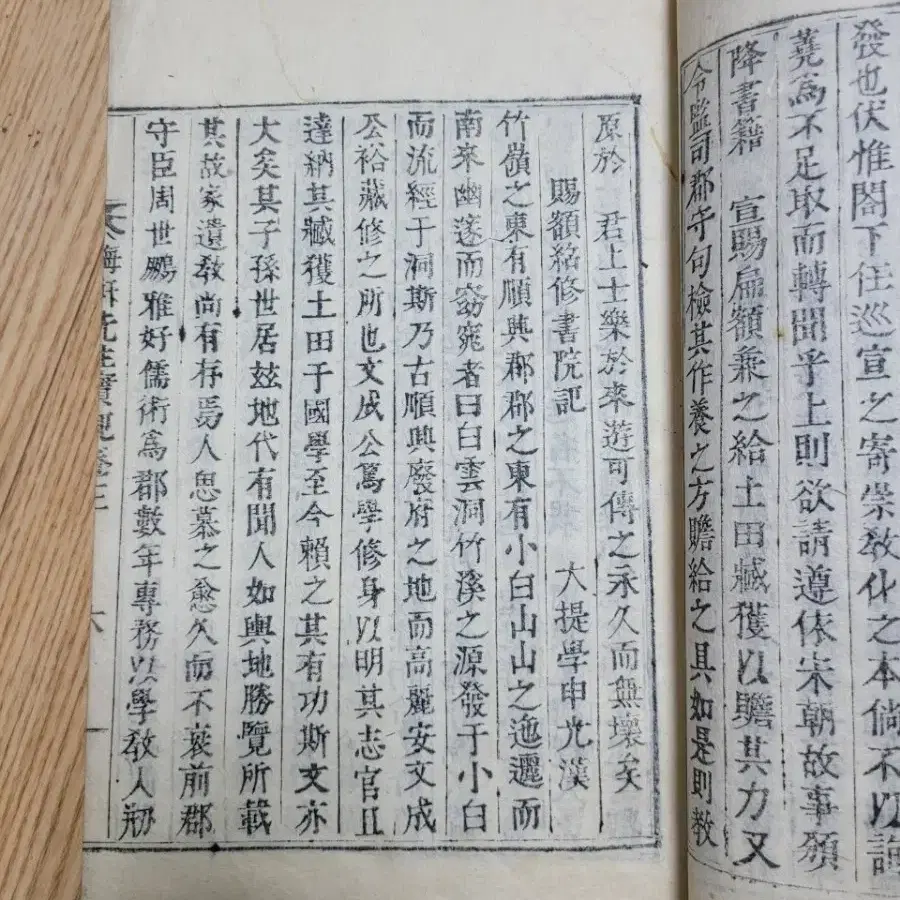 發也伏惟閤下任巡宣之寄崇敎化之本倘不以
蕘爲不足取而轉聞乎上則欲請遵依宋朝故事頒
降書籍 宣賜扁額兼之給土田臧獲以贍其力又
令監司郡守句檢其作養之方贍給之具如是則敎
原於 君上士樂於來遊可傳之永久而無壞矣
賜額紹修書院記 大提學申光漢
竹嶺之東有順興郡郡之東有小白山山之迤邐而
南來幽邃而窈窕者曰白雲洞竹溪之源發于小白
而流經于洞斯乃古順興廢府之地而高麗安文成
公裕藏修之所也文成公篤學修身以明其志官且
達納其臧獲土田于國學至今賴之其有功斯文亦
大矣其子孫世居玆地代有聞人如輿地勝覽所載
其故家遺敎尙有存焉人思慕之愈久而不衰前郡
守臣周世鵬雅好儒術爲郡數年專務以學敎人刱
先生實
六